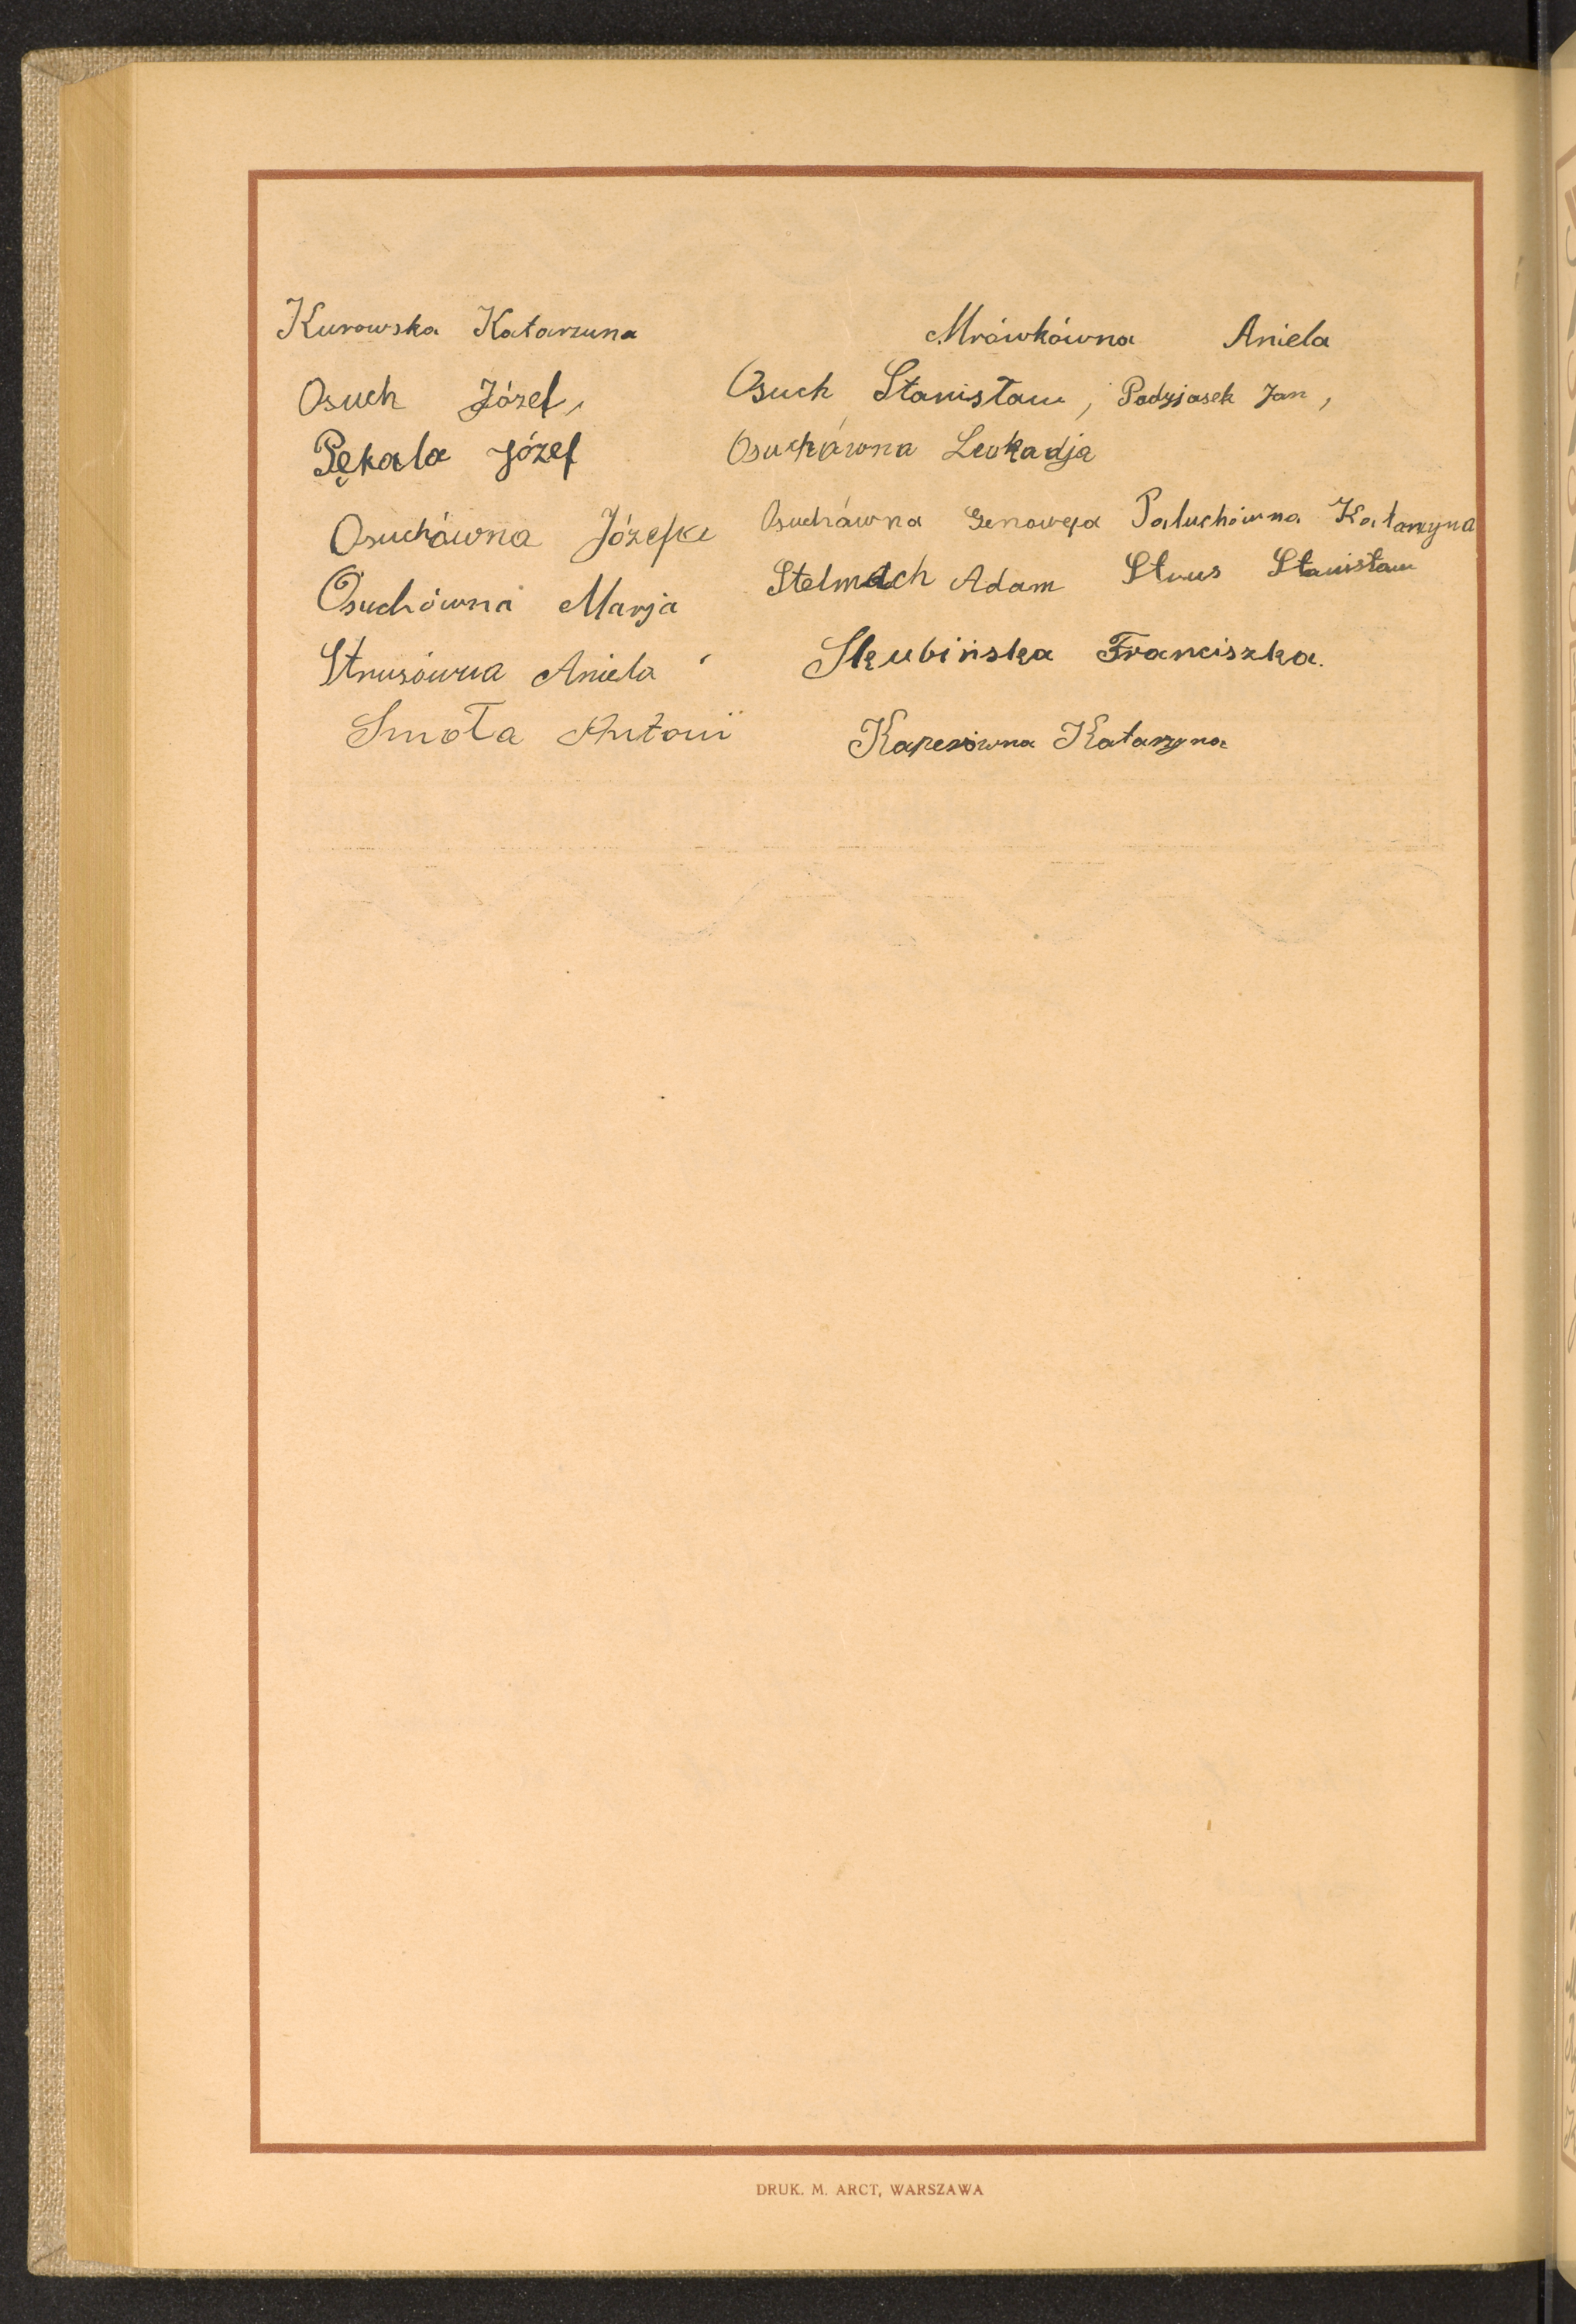 Kurowska Katarzuna Mrówkówna Aniela
Osuch Józef, Osuch Stanisław, Padzjasek Jan,
Pękala Józef Osuchówna Leokadja
Osuchówna Józefa Osuchówna Genowefa Paluchówna Katarzyna
Osuchówna Marja Stelmach Adam Strus Stanisław
Strusówna Aniela Skubińska Franciszka.
Smoła Antoni Kaperówna Katarzyna
DRUK. M. ARCT, WARSZAWA